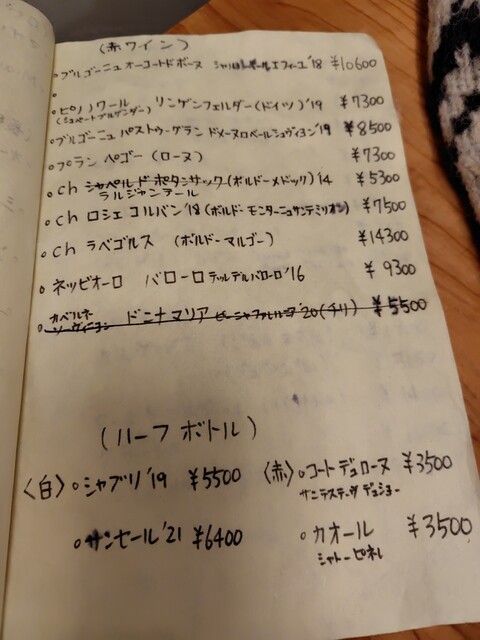 (赤ワイン)
ブルゴーニュ オーコートドボーヌ シャルル ポールエフィーユ'18 ¥10600
ピノノワール
(シュペートブルグンダー) リンゲンフェルダー(ドイツ)'19 ¥7300
ブルゴーニュ パストゥーグラン ドメーヌロベールシュヴィヨン'19 ¥8500
プラン ペゴー (ローヌ) ¥7300
ch シャペルドポタンサック(ボルドーメドック)'14 ¥5300
ラルジャンテール
ch ロシェ コルバン'18(ボルドー モンターニュサンテミリオン) ¥7500
ch ラベゴルス (ボルドーマルゴー) ¥14300
ネッビオーロ バローロ テッレデルバローロ'16 ¥9300
カベルネ
ソーヴィニヨン ドニナマリア '20(チリ) ¥5500
(ハーフボトル)
〈白〉 シャブリ'19 ¥5500 〈赤〉 コートデュローヌ ¥3500
サンセール'21 ¥6400 カオール ¥3500
シャトーピネレ